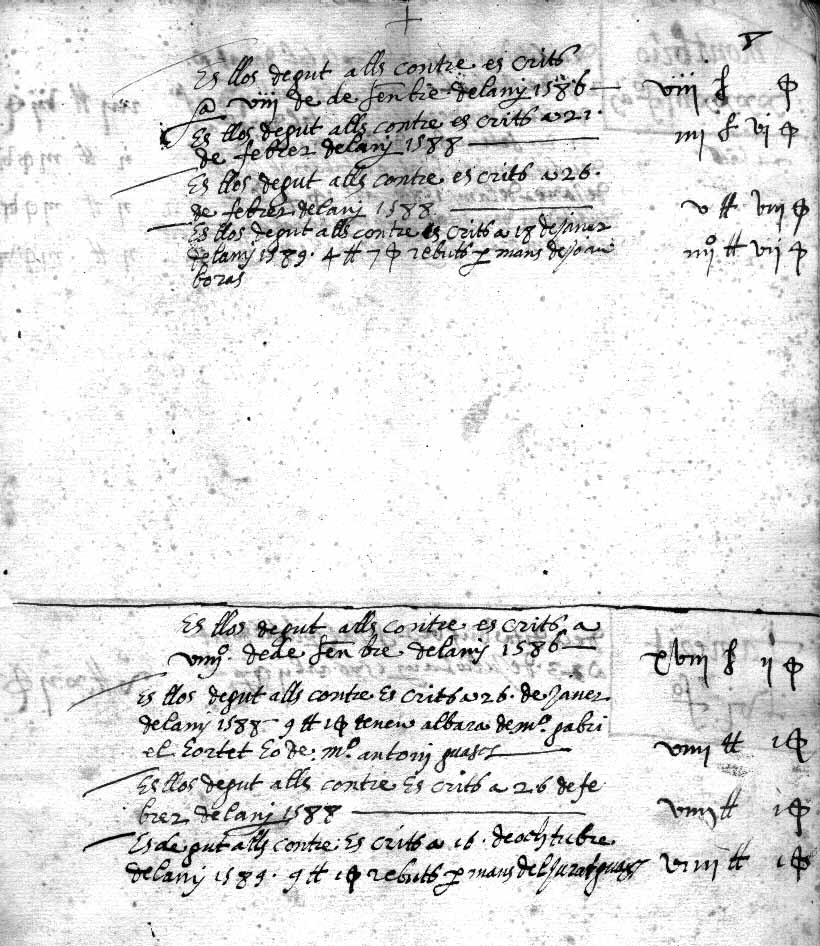 +
Es llos degut alls contre es crits
a viii de de senbre delany 1586 — viii ʃ ф
Es llos degut alls contre es crits a 21·
de febrer delany 1588 — iiij ʃ vi ф
Es llos degut alls contre es crits a 26·
de febrer delany 1588 — v ₶ viiij ф
Es llos degut alls contre es crits a 18 de janer
delany 1589· 4 ₶ 7 ф rebuts p mans de joan
boras iiij° ₶ vij ф
Es llos degut alls contre es crits a
viiij° de de senbre delany 1586 — xviii ʃ ii ф
Es llos degut alls contre Es crits a 26· de janer
delany 1588 9 ₶ 1 ф teneu albara de m° gabri
el de m° antoni guasch — viiii ₶ i ф
Es llos degut alls contre Es crits a 26 de fe
brer delany 1588 — viiij ₶ i ф
Es degut alls contre Es crits a 16· de ochtubre
delany 1589· 9 ₶ 1 ф rebuts p mans del jurat guasch viiii ₶ i ф